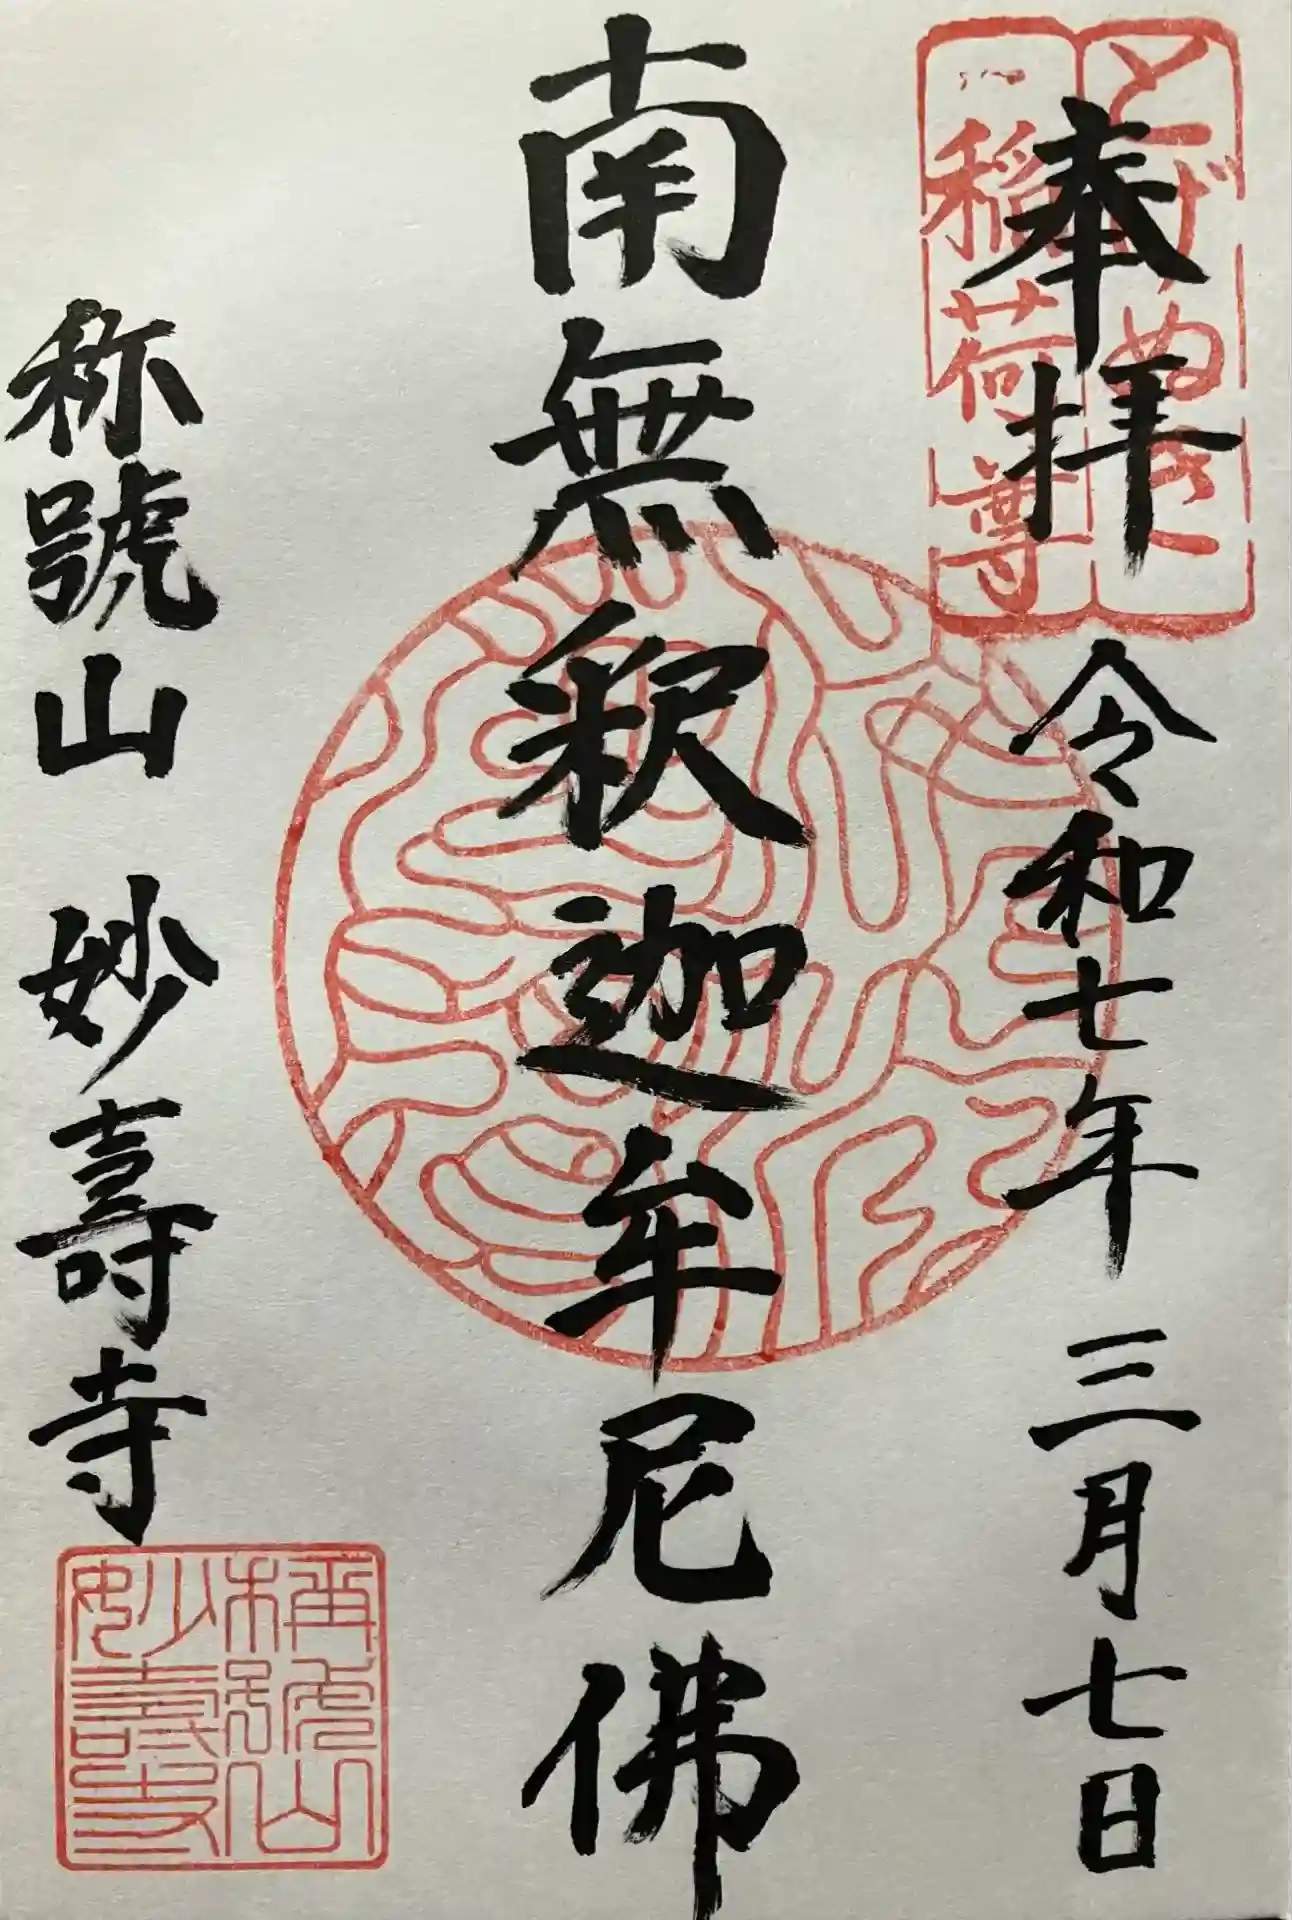 奉拝 令和七年 三月七日
とげぬき
稲荷尊
南無釈迦牟尼佛
称號山 妙壽寺
稱號山
妙壽寺